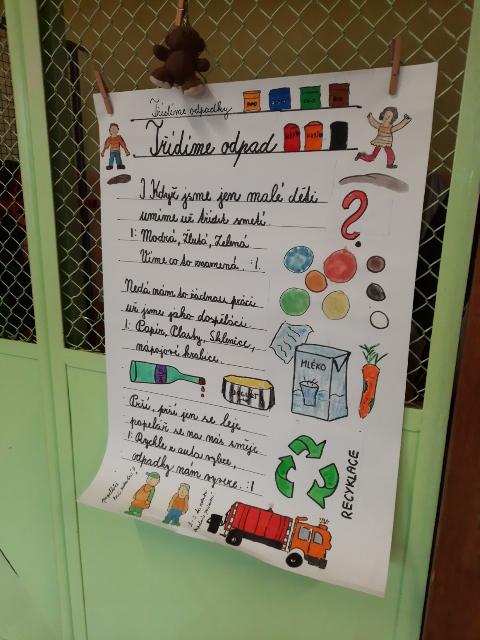 Třídíme odpadky
Třídíme odpad
I Když jsme jen malé děti
umíme už třídit smetí.
I: Modrá, Žlutá, Zelená
Víme co to znamená. :I.
Nedá nám to žádnou práci
už jsme jako dospěláci
I: Papír, Plasty, Sklenice,
nápojové krabice.
MLÉKO
JOGURT
Prší, prší jen se leje
popelář se na nás směje
I: Rychle z auta vyleze,
odpadky nám vyveze. :I
RECYKLACE